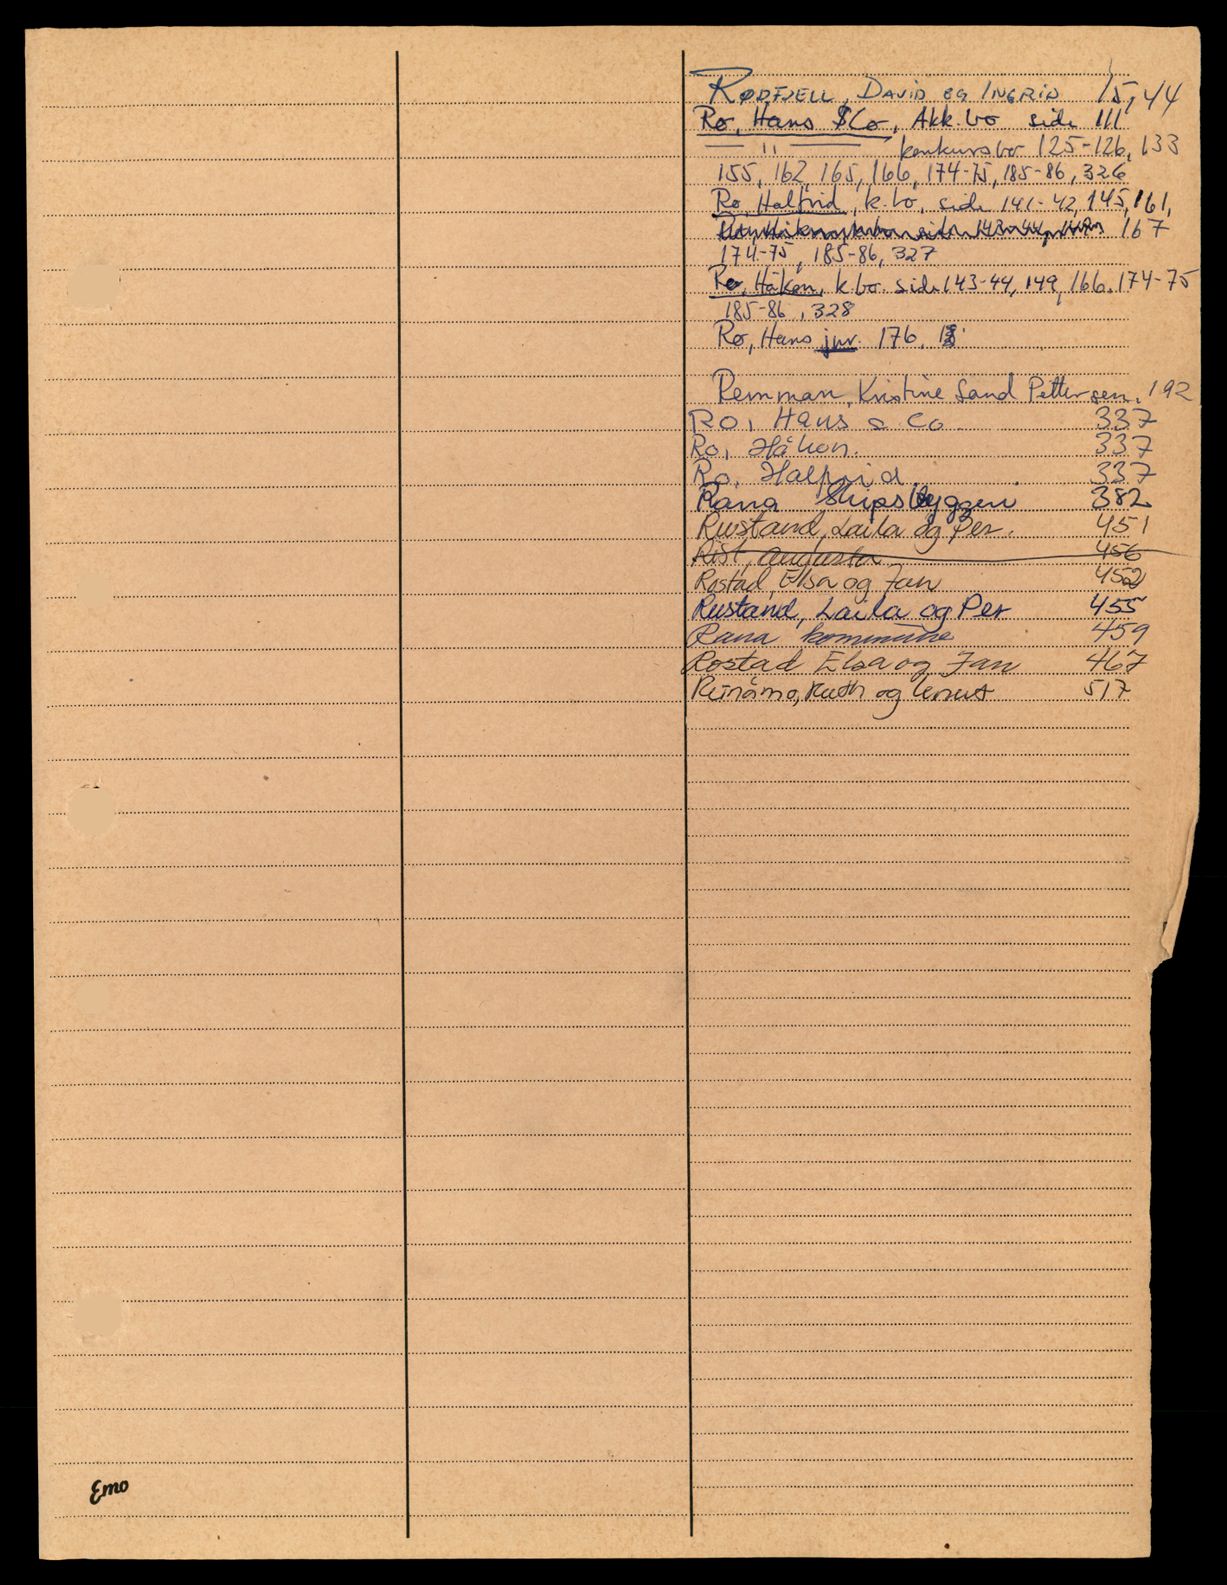 RØDFJELL, DAVID OG INGRID 15, 44
Ro, Hans & Co, Akk. bo side 111
— " — konkursbo 125-126, 133
155, 162, 165, 166, 174-75, 185-86, 326
Ro, Halfrid, k. bo, side 141-42, 145, 161,
167
174-75, 185-86, 327
Ro, Håkon, k. bo. side 143-44, 149, 166, 174-75
185-86, 328
Ro, Hans jnr. 176,
Remman, Kristine Sand Pettersen. 192
Ro, Hans & Co 337
Ro, Håkon. 337
Ro, Halfrid 337
Rana Skipsbyggeri 382
Rustand, Laila og Per. 451
Rist, Augusta 456
Rostad, Elsa og Jan 452
Rustand, Laila og Per 455
Rana kommune 459
Rostad Elsa og Jan 467
Reinåmo, Ruth og 517
Emo